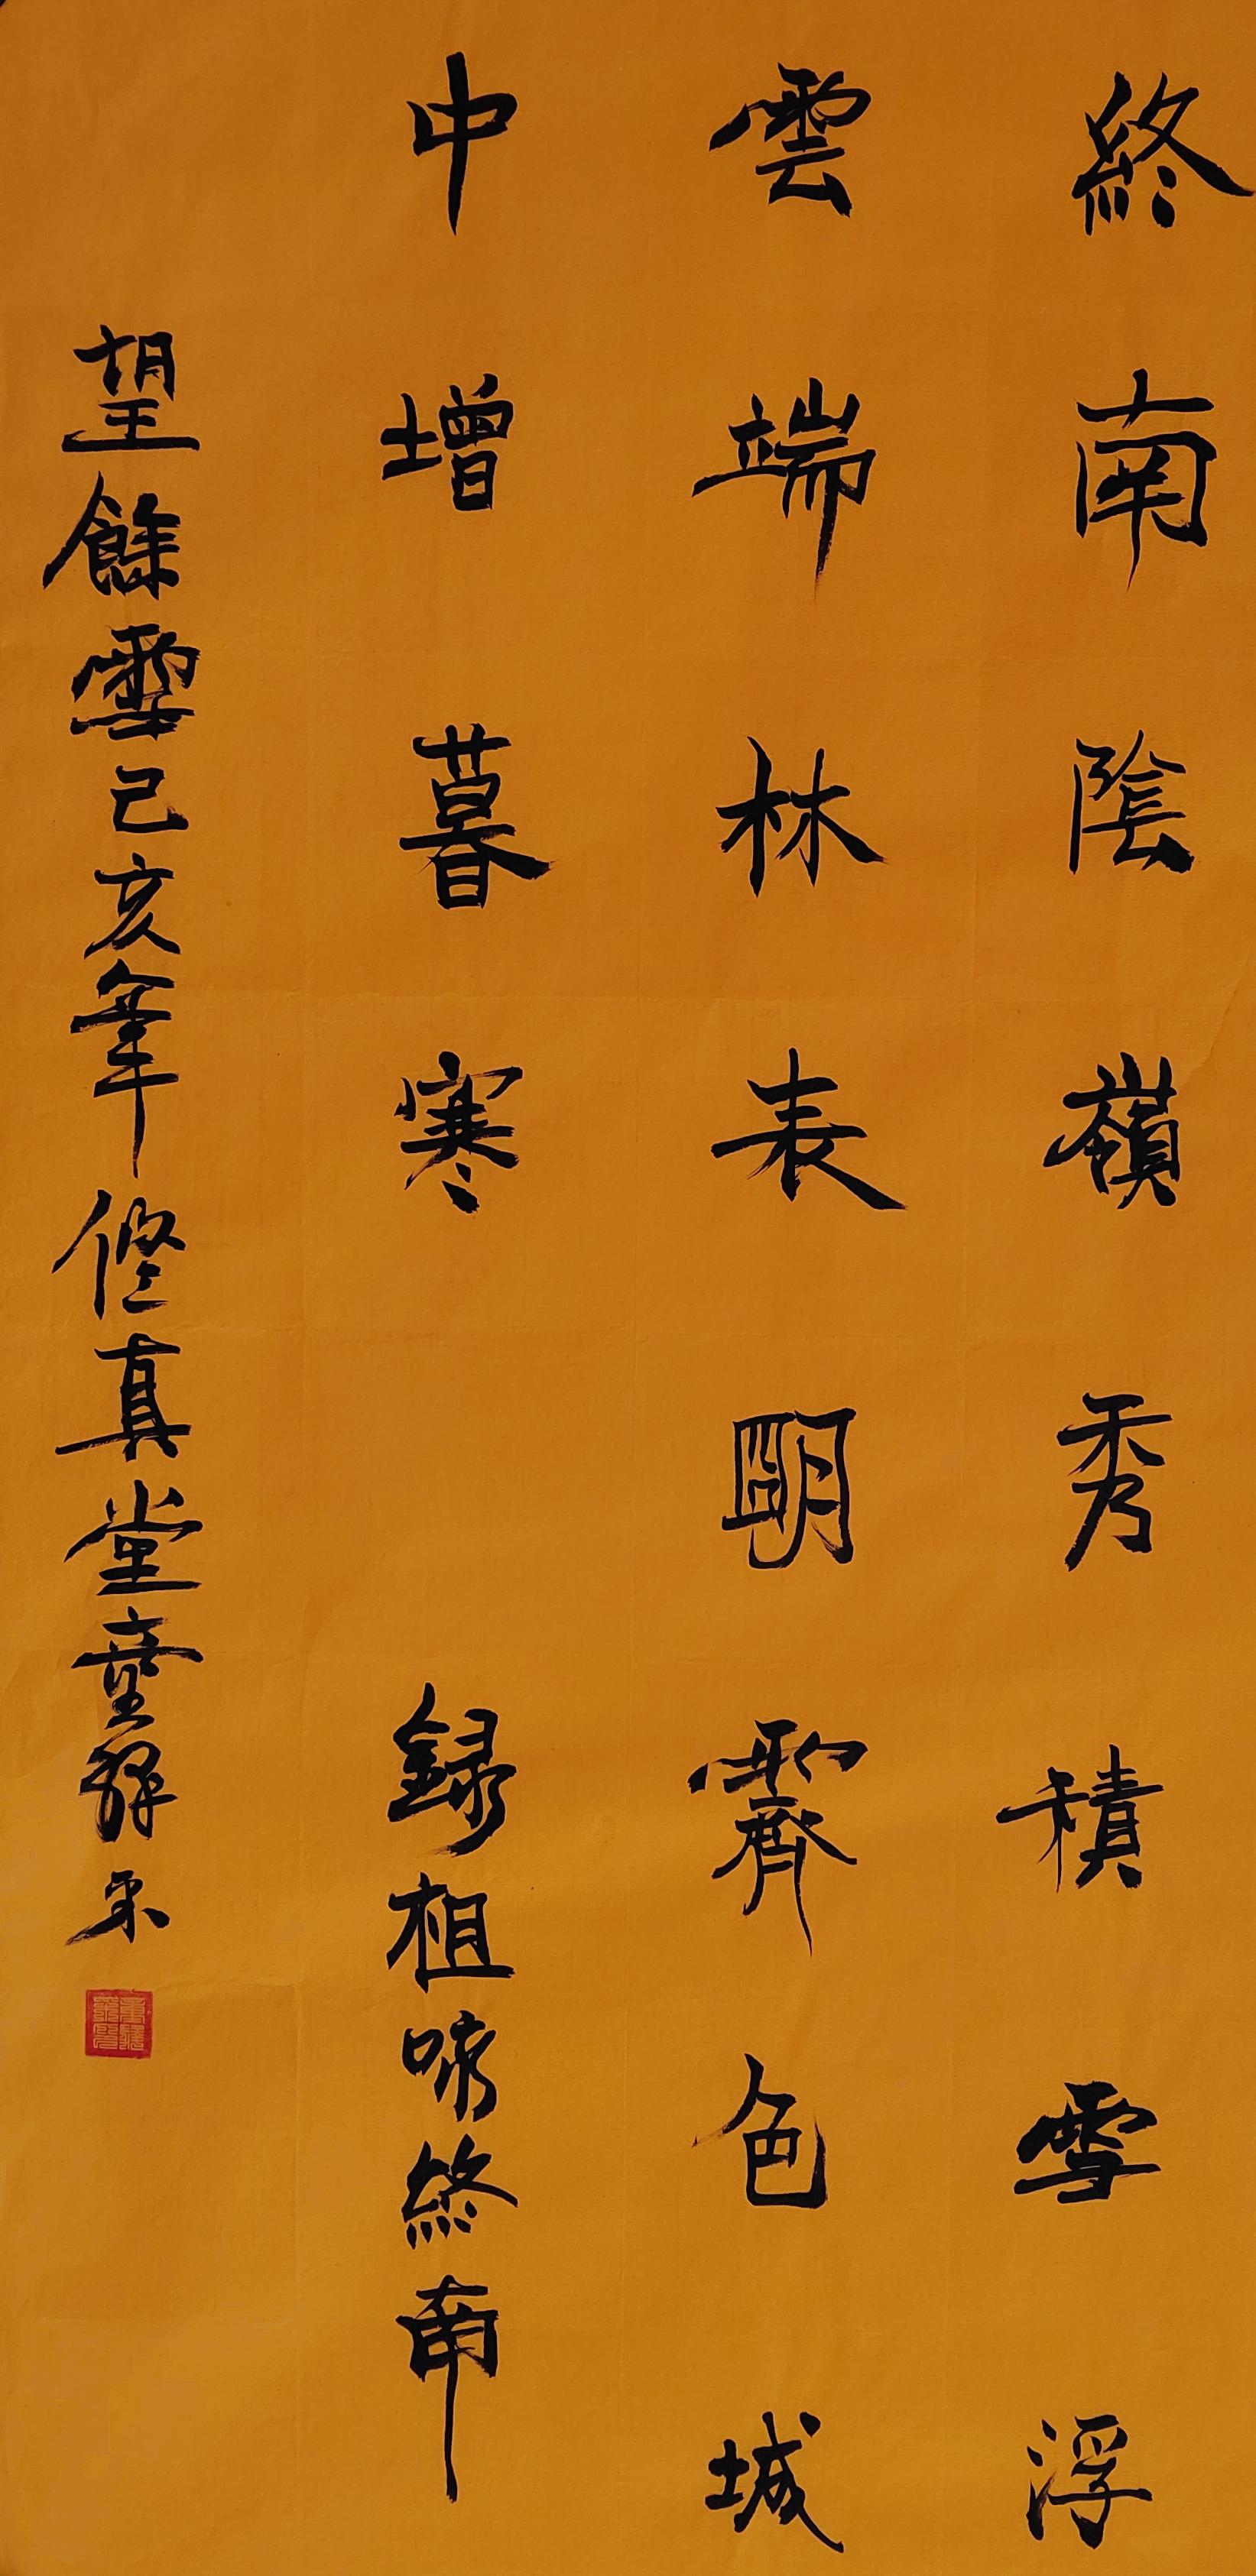 終南陰嶺秀積雪浮
雲端林表明霽色城
中增暮寒 錄祖詠終南
望餘雪己亥年修真堂童辉